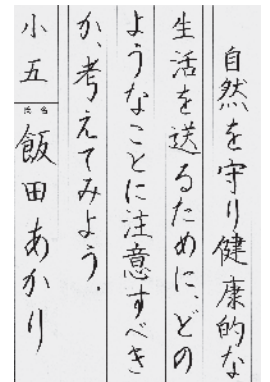 自然を守り健康的な
生活を送るために、どの
ようなことに注意すべき
か、考えてみよう。
小五 氏名 飯田あかり